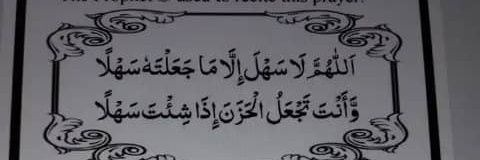 The Prophet ﷺ used to recite this prayer:
اَللّٰهُمَّ لَا سَهْلَ إِلَّا مَا جَعَلْتَهٗ سَهْلًا
وَّأَنْتَ تَجْعَلُ الْحَزَنَ إِذَا شِئْتَ سَهْلًا